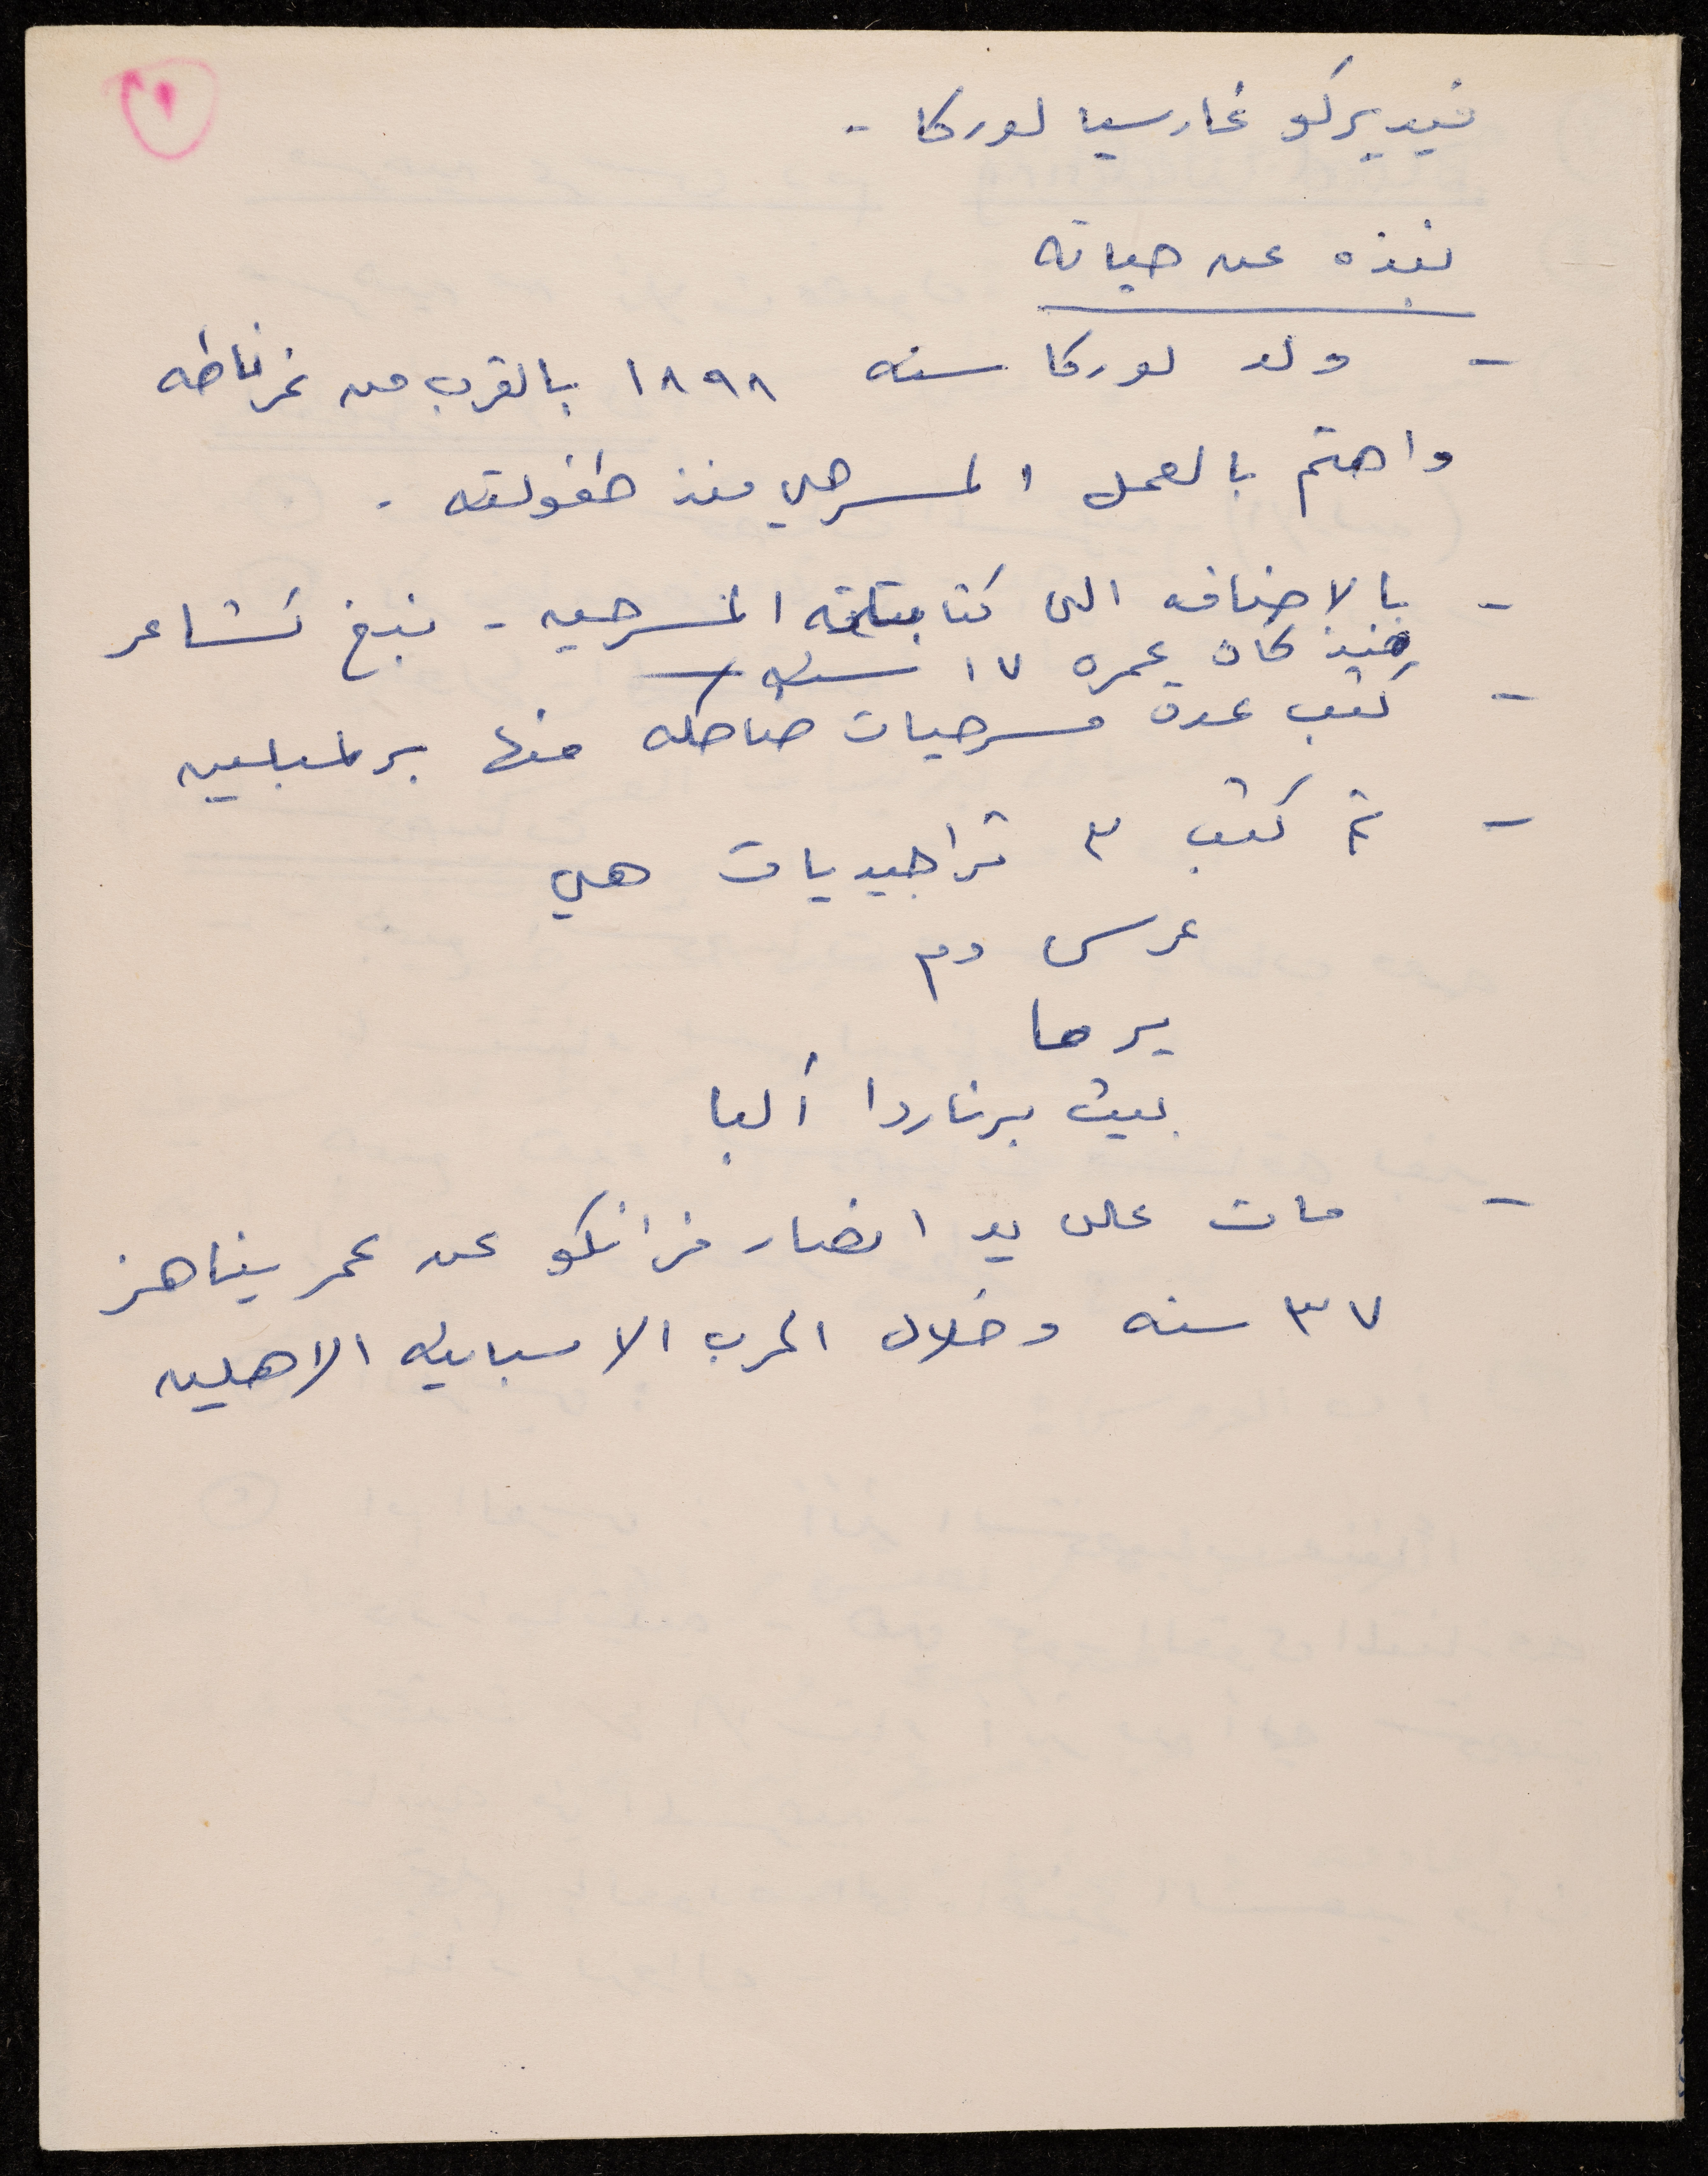 ١
فيديركو غارسيا لوركا -
نبذه عن حياته
- ولد لوركا سنه ١٨٩٨ بالقرب من غرناطه
واهتم بالعمل المسرحي منذ طفولته .
- بالاضافه الى كتاباته المسرحيه - نبغ كشاعر
منذ كان عمره ١٧ سنه
- كتب عدة مسرحيات ضاحكه منها برلمبلين
- ثم كتب ٣ تراجيديات هي
عرس دم
يرما
بيت برناردا ألبا
- مات على يد انصار فرانكو عن عمر يناهز
٣٧ سنه وخلال الحرب الاسبانيه الاهليه